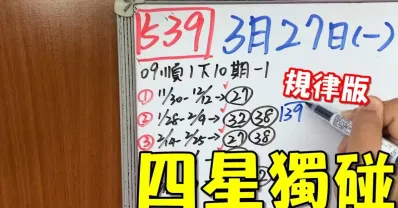 539 3月27日(一)
09順1下10期-1
規律版
① 11/30-12/12→27
② 1/28-2/9→32 38 139
③ 2/14-2/25→27 38
四星獨碰